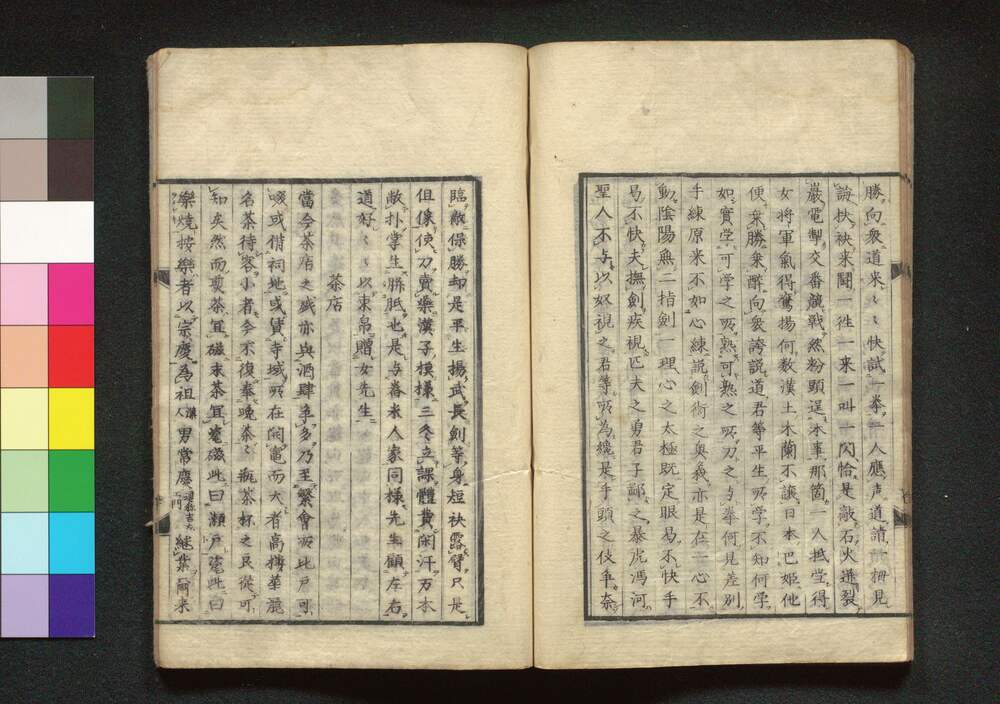 勝。向衆道来〻〻快試一拳。一人應声道請
誨扶袂来闘一徃一来一叫一閃恰是敲石火迸裂
嚴電掣交番競戰。然粉頸逞本事那箇一人抵堂得
女將軍氣得鷹揚何教漢土木蘭不讓日本巴姫他
便乗勝乗醉向衆誇説道君等平生所学不知何学
如実学可学之所熟可熟之所刀之与拳何見差別
手練原来不如心練説劍術之奥義亦是在一心不
動陰陽無二指劍一理心之太極既定眼易不快手
易不快夫撫劍疾視匹夫之勇君子鄙之暴虎馮河
聖人不与以奴視之君等所為纔是手頭之伎事奈
臨敵保勝却是平生揚武長劍等身短袂露臂只是
但像使刀賣藥漢子模樣三冬立課體費閑汗万本
敵扑掌生胼胝也是与舂米人家同樣先生顧左右
道好〻〻以束帛贈女先生
茶店
當今茶店之盛亦與酒肆爭多乃至繁會所比戸可
啜或借祠地或賃寺域所在開竃而大者高搆華麗
名茶待客小者今不復奉晩茶〻瓶茶杯之良從可
知矣然而煎茶宜磁末茶宜甆磁此曰瀬戸甆此曰
樂焼按樂者以宗慶為祖漢人男常慶継業爾来